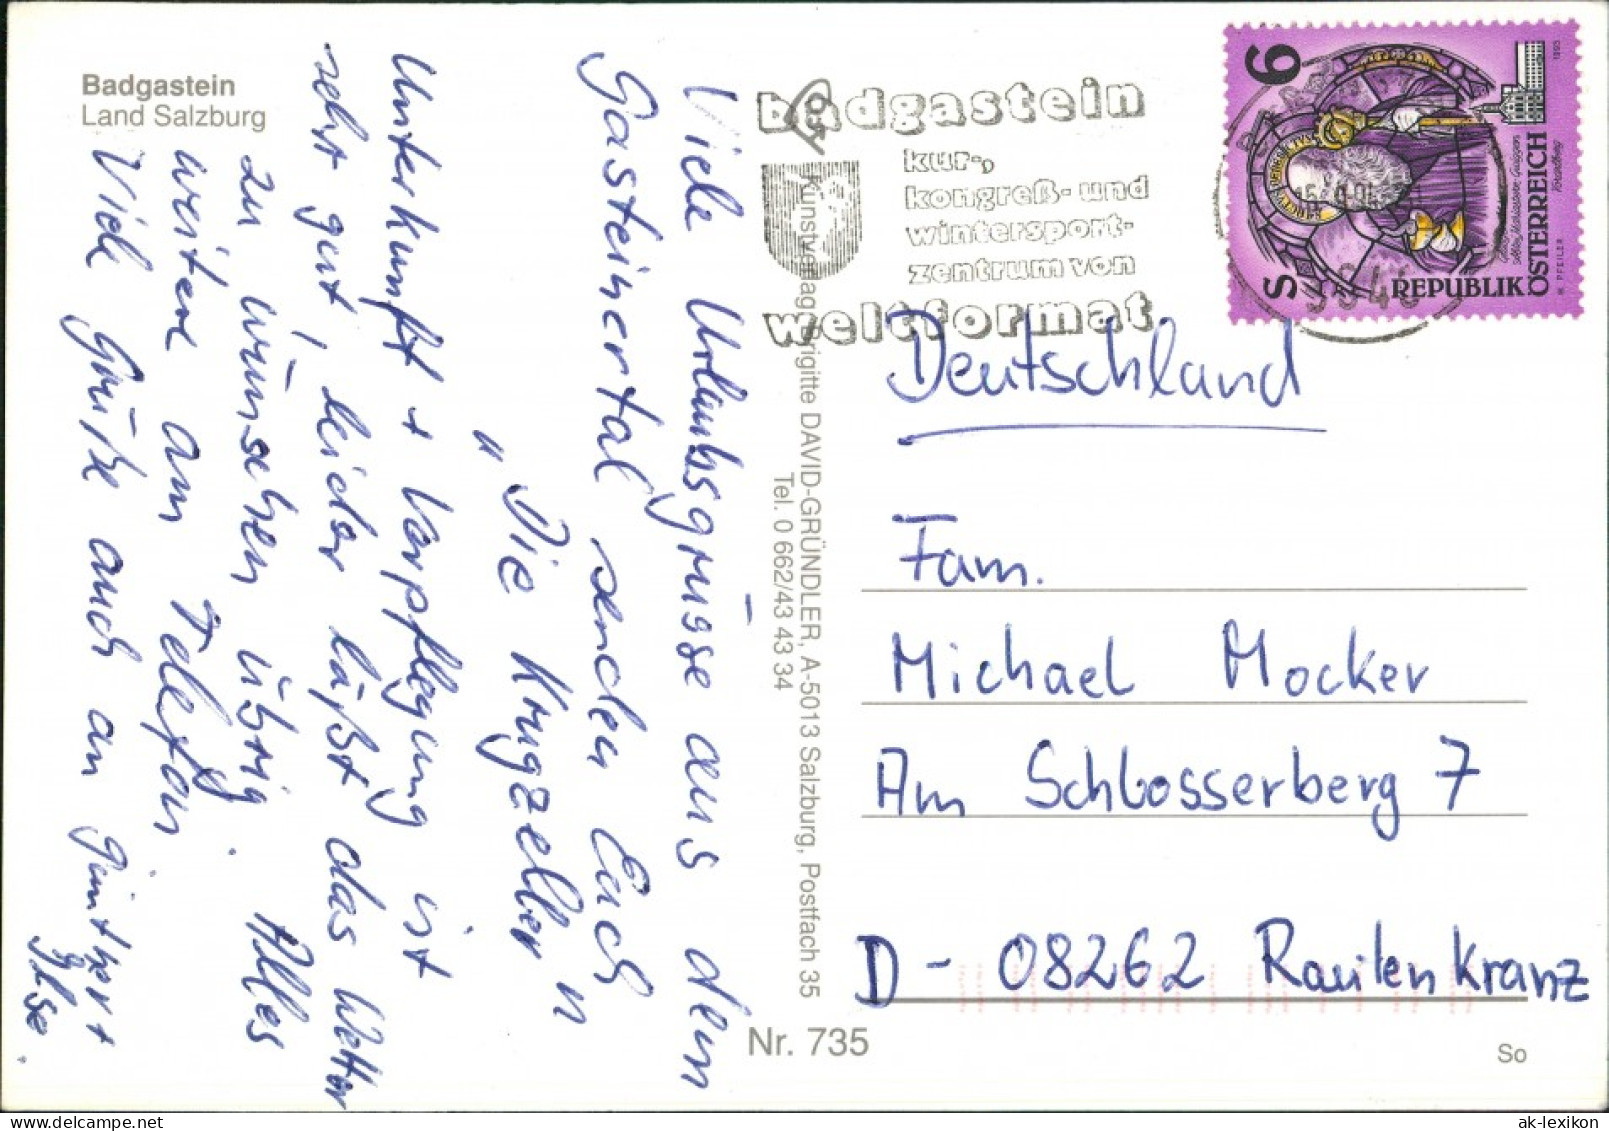 Badgastein
Land Salzburg
Viele Urlaubsgrüsse aus dem
Gasteinertal senden Euch
"Die Krugzeller"
Unterkunft + Verpflegung ist
sehr gut, leider läßt das Wetter
zu wünschen übrig. Alles
weitere am Telefon.
Viele Grüße auch an Günther +
Ilse.
Kunstverlag Brigitte DAVID-GRÜNDLER, A-5013 Salzburg, Postfach 35
Tel. 0 662/43 43 34
Nr. 735
badgastein
kur-,
kongreß- und
wintersport-
zentrum von
weltformat
S 6
SANCTVS BENEDICTVS
REPUBLIK ÖSTERREICH
1993
Deutschland
Fam.
Michael Mocker
Am Schlosserberg 7
D - 08262 Rautenkranz
So
ak-lexikon